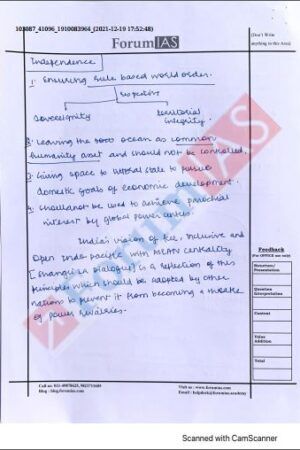 103087_41096_1910083964_(2021-12-19 17:52:48)
ForumIAS
(Don't Write
anything in this Area)
Independence
1. Ensuring Rule based world order.
Sovereignity
territorial
integrity.
2. Leaving the ocean as common
humanity asset and should not be controlled.
3. Giving space to littoral state to pursue
domestic goals of economic development.
4. Should not be used to achieve parochial
interest by global power
India's vision of free, Inclusive and
Open Indo pacific with ASEAN centrality
[Shangri La Dialogue] is a reflection of this
principles which should be adopted by other
nations to prevent it from becoming a theatre
of power rivalries.
Feedback
(For OFFICE use only)
Structure/
Presentation
Question
Interpretation
Content
Value
Addition
Total
ForumIAS
Call us: 011-49878625, 9821711605
blog : blog.forumias.com
Visit us : www.forumias.com
Email : helpdesk@forumias.academy
Scanned with CamScanner